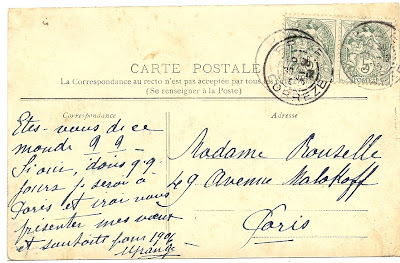 CARTE POSTALE
La Correspondance au recto n'est pas acceptée par tous
(Se renseigner à la Poste)
CORREZE
Correspondance
Adresse
Etes-vous de ce
monde ??
Si oui, dans q.q.
jours je serai à
Paris et irai vous
présenter mes vœux
et souhaits pour 1906
Madame Rouselle
49 Avenue Malakoff
Paris